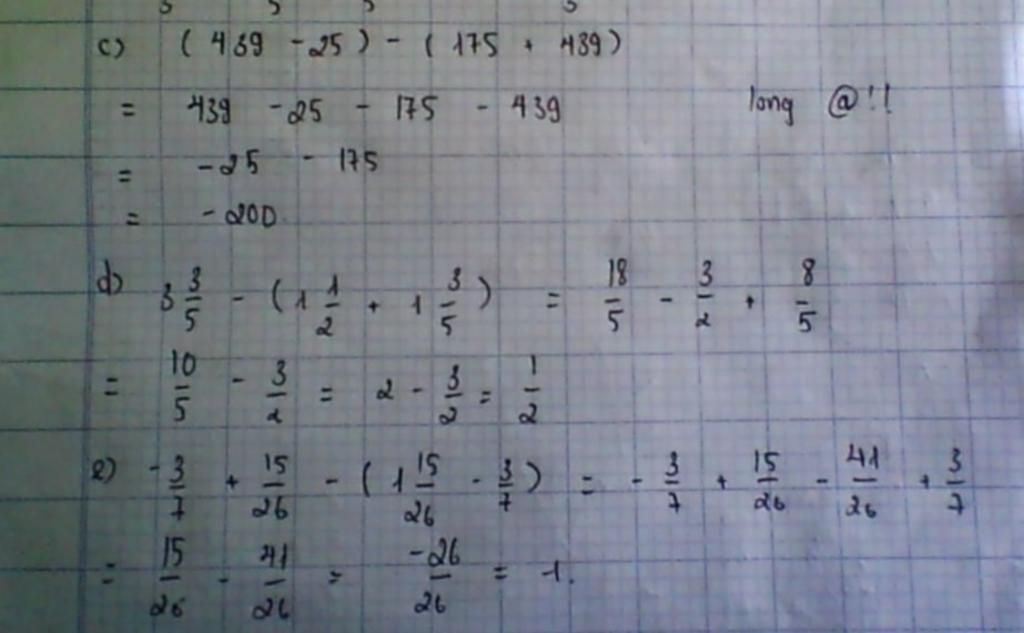 c) (439 - 25) - (175 + 439)
= 439 - 25 - 175 - 439 long @!!
= -25 - 175
= -200
d) 3 3/5 - (1 1/2 + 1 3/5) = 18/5 - 3/2 + 8/5
= 10/5 - 3/2 = 2 - 3/2 = 1/2
e) -3/7 + 15/26 - (1 15/26 - 3/7) = -3/7 + 15/26 - 41/26 + 3/7
= 15/26 - 41/26 = -26/26 = -1.